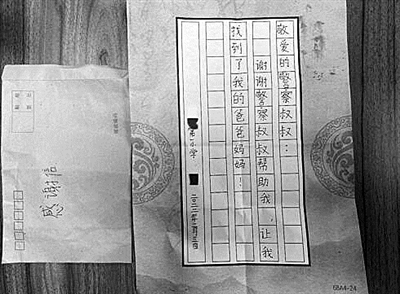 敬爱的警察叔叔：
谢谢警察叔叔帮助我，让我
找到了我的爸爸妈妈！
小学
感谢信
68A4-24